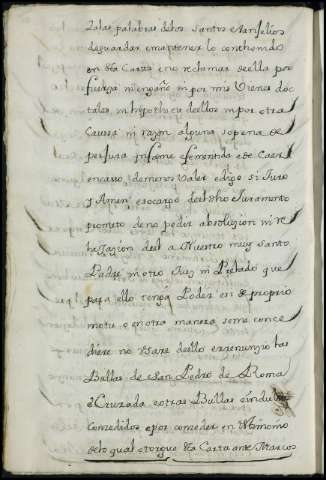 Ȧlas palabras delos Santos evanjelios
deguardar emantener lo contthenido
en Esta Carta eno reclamar deella por
fuerza ni engaño ni por mis vienes do
tales ni hypotheca deellos ni por otra
Causa ni razon alguna sopena de
perjura infame fementida e de Caer
encasso demenos Valer e digo si Juro
y Amen, e so cargo del dho Juramento
prometo de no pedir absolucion ni re
laxacion deel a Nuestro muy santo
Padre ni otro Juez ni Prelado que
para ello tenga Poder en de proprio
motu o en otra manera se me conce
diere no Usare deello e renunzio las
Bullas de San Pedro de Roma
e Cruzada e otras Bullas e indultos
Comedidos e por comeder en thimomo
delo qual otorgue esta Carta ante Marcos